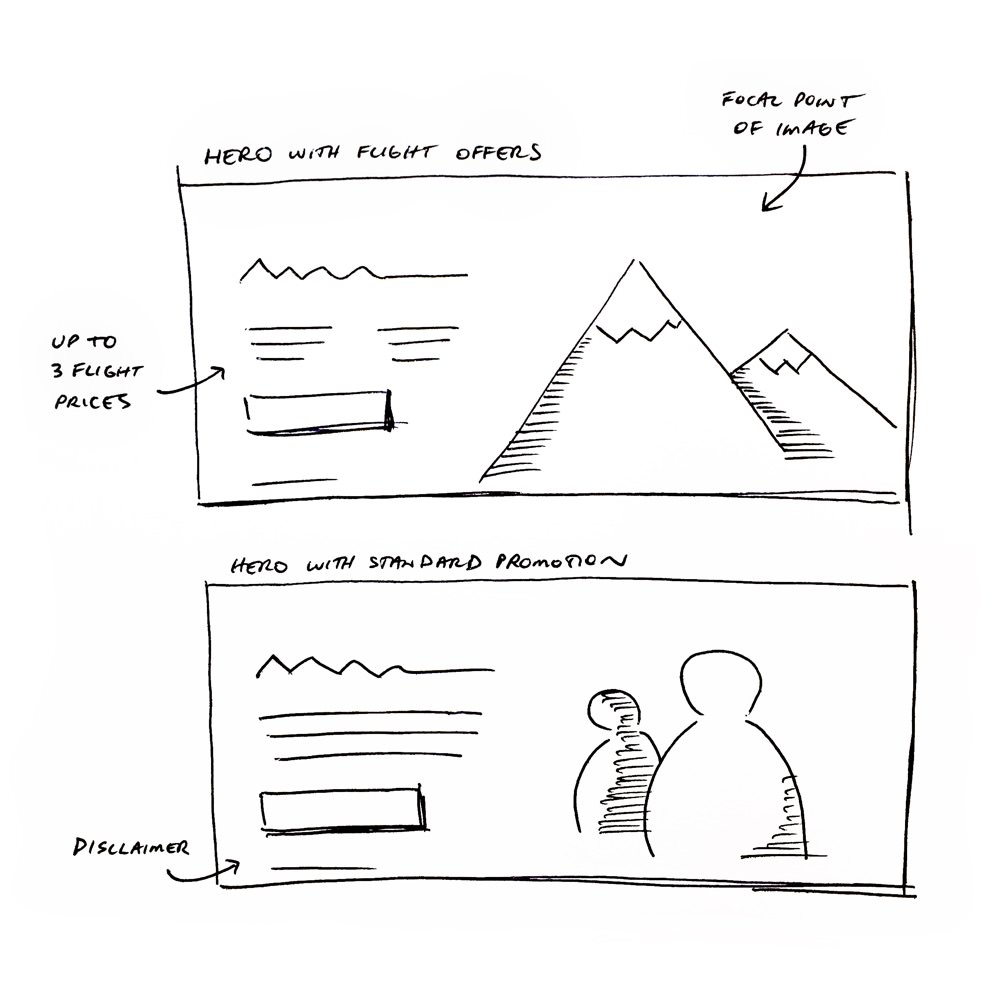 FOCAL POINT
OF IMAGE
HERO WITH FLIGHT OFFERS
UP TO
3 FLIGHT
PRICES
HERO WITH STANDARD PROMOTION
DISCLAIMER